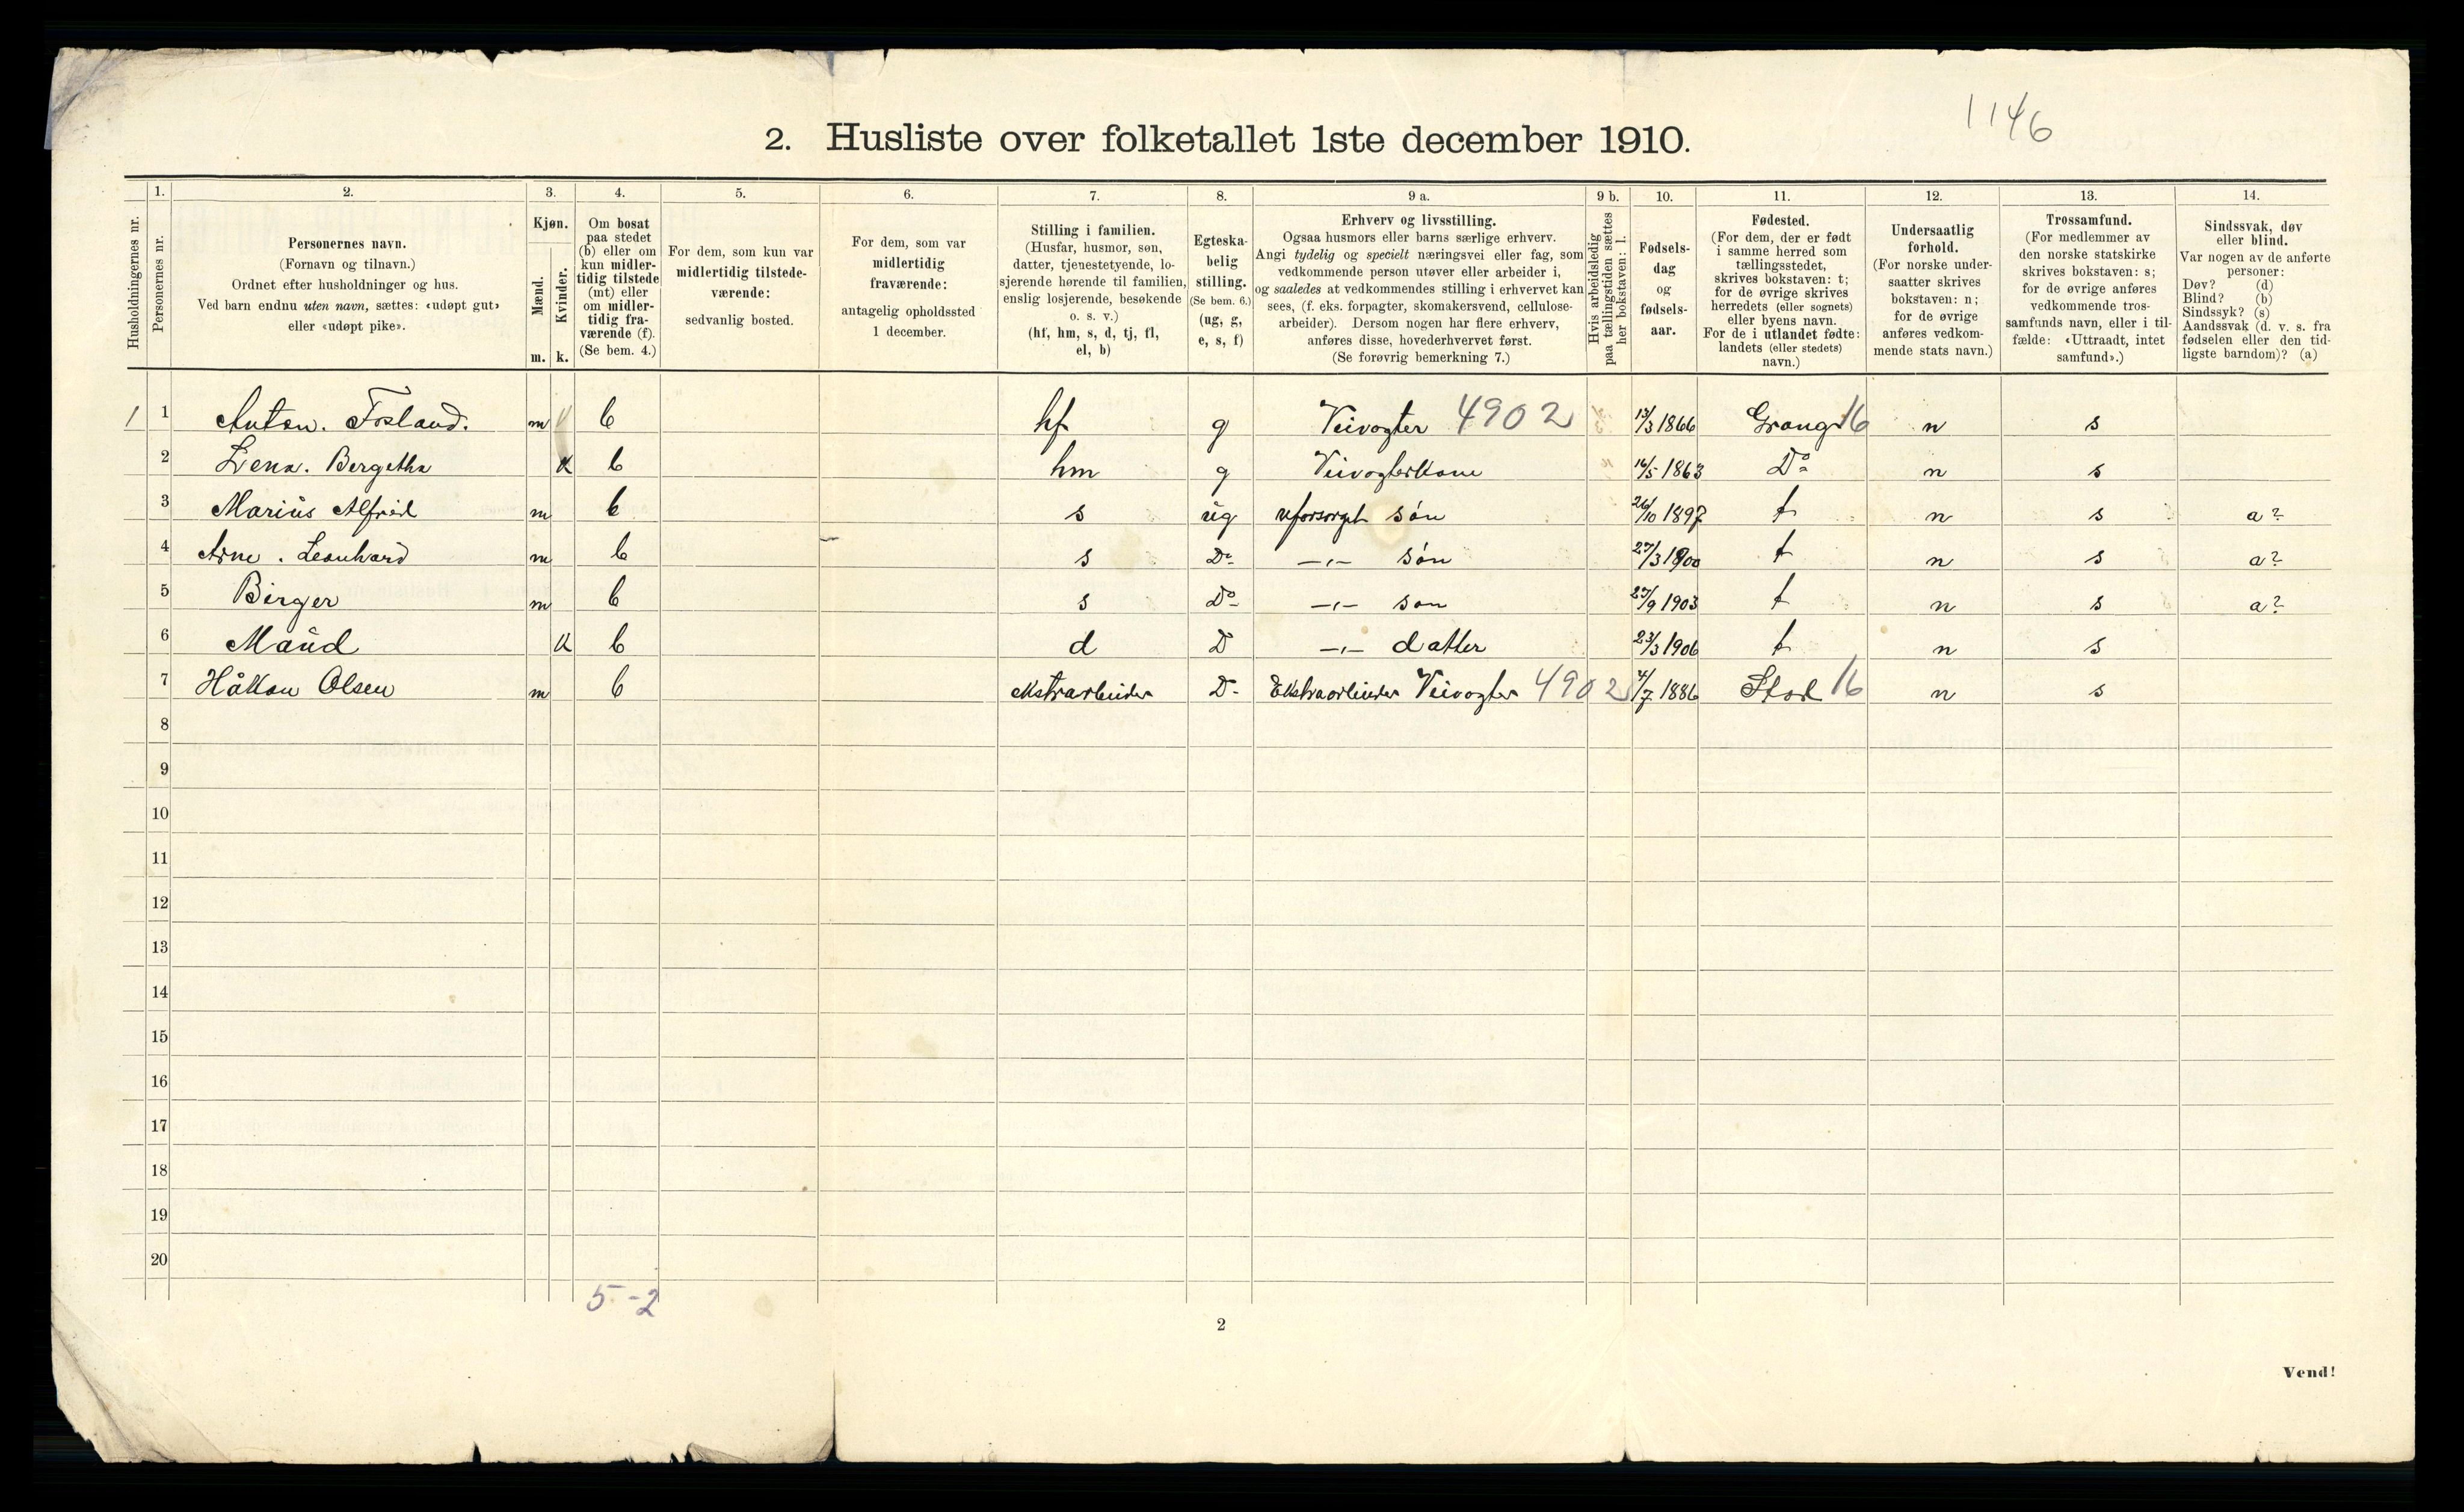 1146
2. Husliste over folketallet 1ste december 1910.
Husholdningernes nr.
1.
Personernes nr.
2.
Personernes navn.
(Fornavn og tilnavn.)
Ordnet efter husholdninger og hus.
Ved barn endnu uten navn, sættes: «udøpt gut»
eller «udøpt pike».
3.
Kjøn.
Mænd.
Kvinder.
m. k.
4.
Om bosat
paa stedet
(b) eller om
kun midler-
tidig tilstede
(mt) eller
om midler-
tidig fra-
værende (f).
(Se bem. 4.)
5.
For dem, som kun var
midlertidig tilstede-
værende:
sedvanlig bosted.
6.
For dem, som var
midlertidig
fraværende:
antagelig opholdssted
1 december.
7.
Stilling i familien.
(Husfar, husmor, søn,
datter, tjenestetyende, lo-
sjerende hørende til familien,
enslig losjerende, besøkende
o. s. v.)
(hf, hm, s, d, tj, fl,
el, b)
8.
Egteska-
belig
stilling.
(Se bem. 6.)
(ug, g,
e, s, f)
9 a.
Erhverv og livsstilling.
Ogsaa husmors eller barns særlige erhverv.
Angi tydelig og specielt næringsvei eller fag, som
vedkommende person utøver eller arbeider i,
og saaledes at vedkommendes stilling i erhvervet kan
sees, (f. eks. forpagter, skomakersvend, cellulose-
arbeider). Dersom nogen har flere erhverv,
anføres disse, hovederhvervet først.
(Se forøvrig bemerkning 7.)
9 b.
Hvis arbeidsledig
paa tællingstiden sættes
her bokstaven: l.
10.
Fødsels-
dag
og
fødsels-
aar.
11.
Fødested.
(For dem, der er født
i samme herred som
tællingsstedet,
skrives bokstaven: t;
for de øvrige skrives
herredets (eller sognets)
eller byens navn.
For de i utlandet fødte:
landets (eller stedets)
navn.)
12.
Undersaatlig
forhold.
(For norske under-
saatter skrives
bokstaven: n;
for de øvrige
anføres vedkom-
mende stats navn.)
13.
Trossamfund.
(For medlemmer av
den norske statskirke
skrives bokstaven: s;
for de øvrige anføres
vedkommende tros-
samfunds navn, eller i til-
fælde: «Uttraadt, intet
samfund».)
14.
Sindssvak, døv
eller blind.
Var nogen av de anførte
personer:
Døv? (d)
Blind? (b)
Sindssyk? (s)
Aandssvak (d. v. s. fra
fødselen eller den tid-
ligste barndom)? (a)
1 1 Anton. Fosland. m b hf g Veivogter 4902 13/3 1866 Grong 16 n s
2 Lena. Bergetha k b hm g Veivogterkone 16/5 1863 Do n s
3 Marius Alfred m b s ug uforsorget søn 26/10 1897 t n s a?
4 Arne. Leonhard m b s Do -"- søn 27/3 1900 t n s a?
5 Birger m b s Do -"- søn 27/9 1903 t n s a?
6 Maud k b d D -"- datter 23/3 1906 t n s
7 Håkon Olsen m b ekstraarbeider D- Ekstraarbeider Veivogter 4902 4/7 1886 Stod 16 n s
8
9
10
11
12
13
14
15
16
17
18
19
20
5-2
2
Vend!